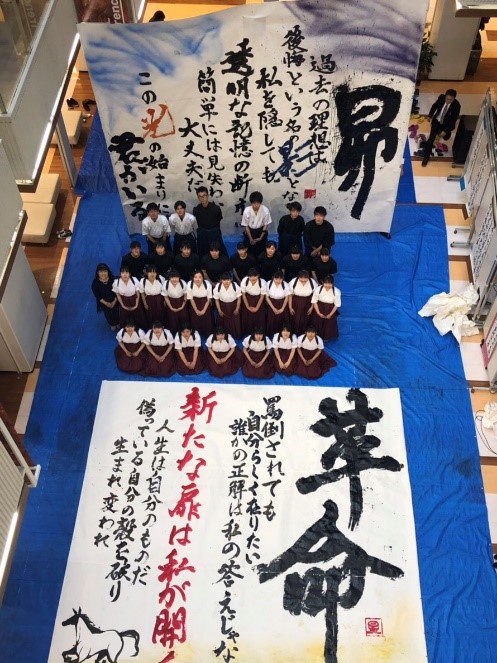 昴
過去の理想は
後悔という名の影とな
私を隠しても
透明な記憶の断
簡単には見失わ
大丈夫だ
この光の始まり
君がいる
革命
罵倒されても
自分らしく在りたい
誰かの正解は私の答えじゃな
新たな扉は私が開く
人生は自分のものだ
偽っている自分の殻を破り
生まれ変われ